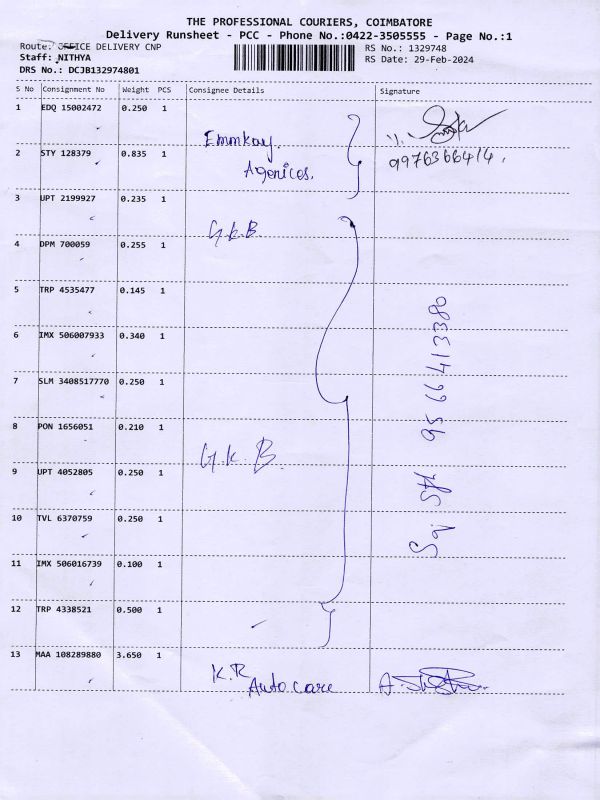 THE PROFESSIONAL COURIERS, COIMBATORE
Delivery Runsheet - PCC - Phone No.:0422-3505555 - Page No.:1
Route: OFFICE DELIVERY CNP
RS No.: 1329748
Staff: NITHYA
RS Date: 29-Feb-2024
DRS No.: DCJB132974801
S No Consignment No Weight PCS Consignee Details Signature
1 EDQ 15002472 0.250 1
Emmkay
Agenices.
9976366414.
2 STY 128379 0.835 1
3 UPT 2199927 0.235 1
G.k.B
4 DPM 700059 0.255 1
5 TRP 4535477 0.145 1
6 IMX 506007933 0.340 1
7 SLM 3408517770 0.250 1
9566413380
8 PON 1656051 0.210 1
G.k.B.
9 UPT 4052805 0.250 1
10 TVL 6370759 0.250 1
11 IMX 506016739 0.100 1
12 TRP 4338521 0.500 1
13 MAA 108289880 3.650 1
K.R
Auto care